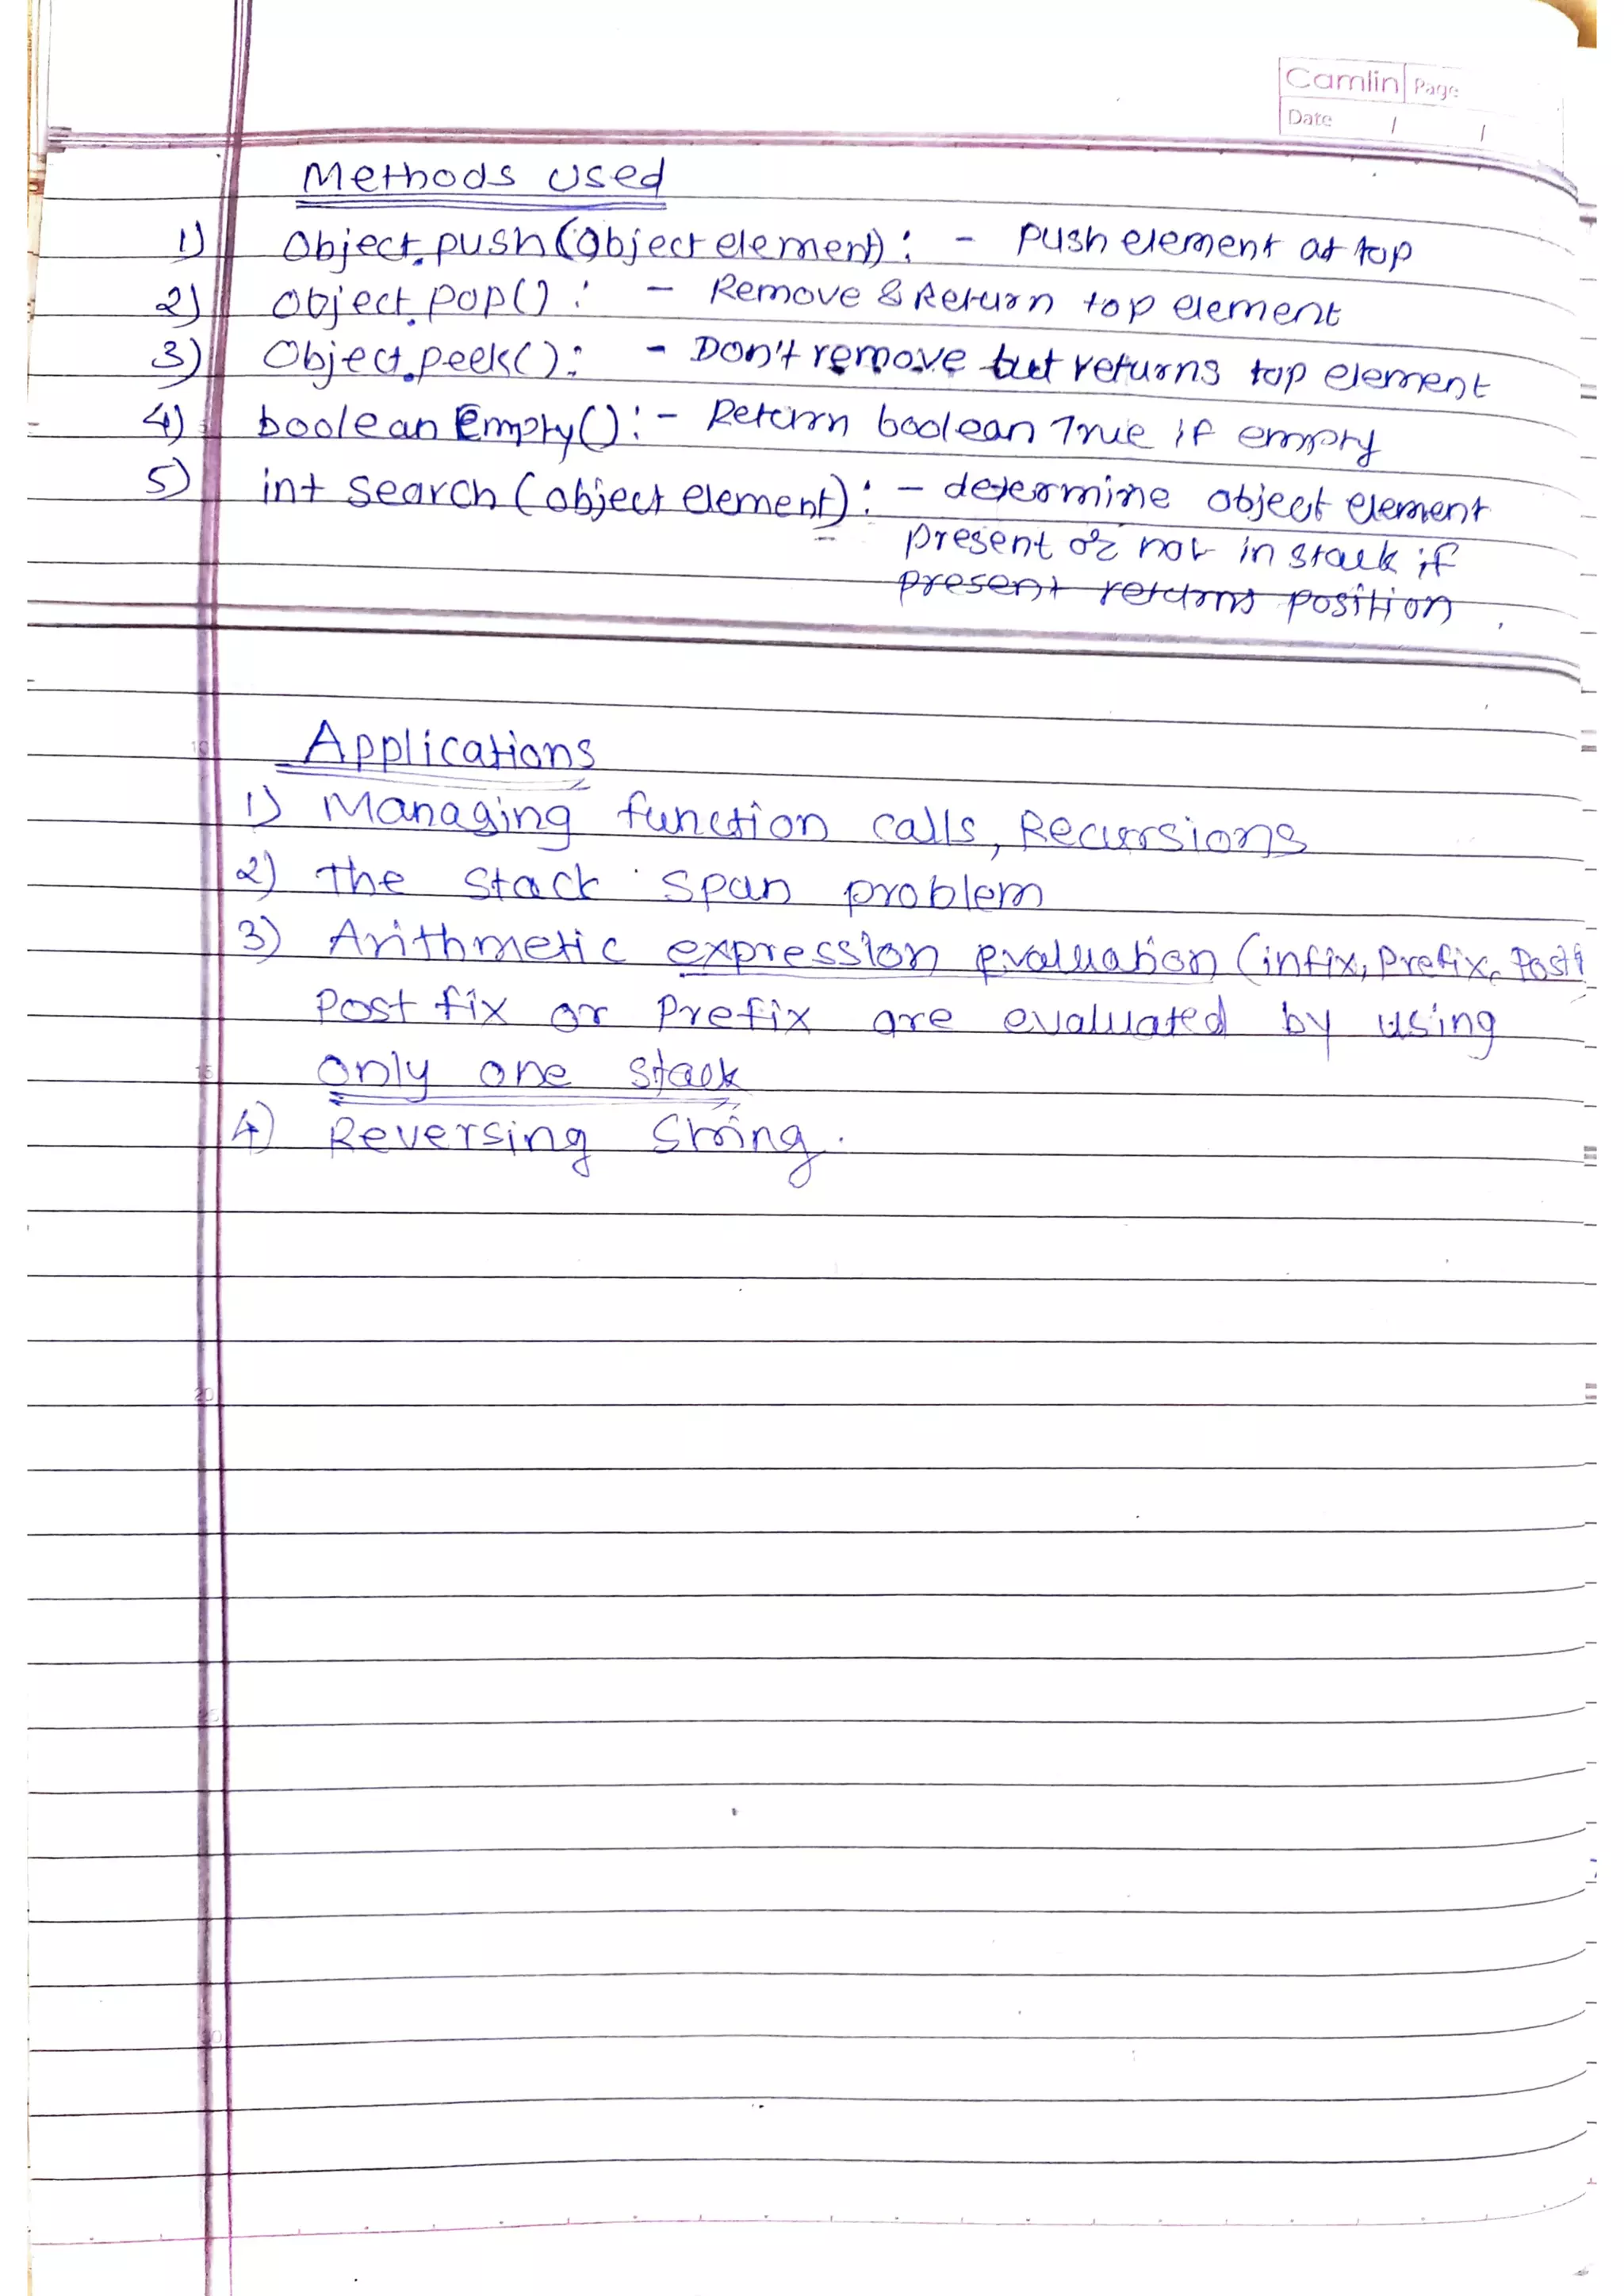 Camlin Page
Date / /
Methods Used
1) Object.push(Object element) : - Push element at top
2) Object.pop() : - Remove & Return top element
3) Object.peek() : - Don't remove but returns top element
4) boolean Empty() : - Return boolean True if empty
5) int search (object element) : - determine object element
present or not in stack if
present returns position.
Applications
10
1) Managing function calls, Recursions
2) The Stack Span problem
3) Arithmetic expression evaluation (infix, Prefix, Postf
Post fix or Prefix are evaluated by using
15 only one stack
4) Reversing String.
20